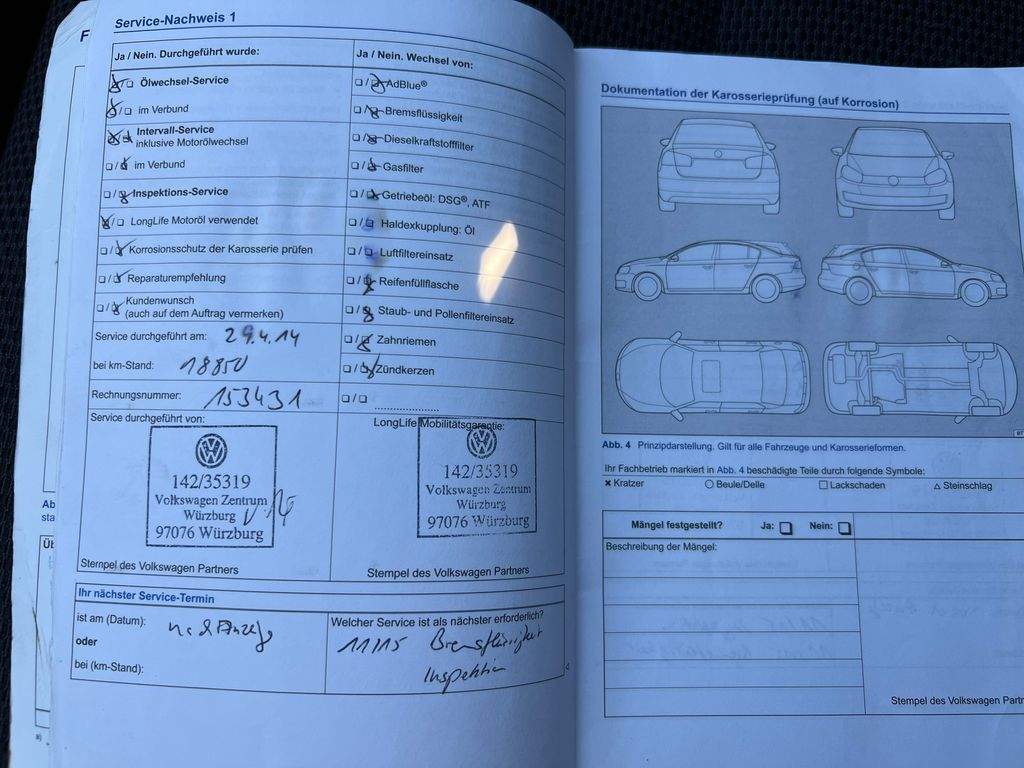 Service-Nachweis 1
Ja / Nein. Durchgeführt wurde:
Ölwechsel-Service
im Verbund
Intervall-Service
inklusive Motorölwechsel
im Verbund
Inspektions-Service
LongLife Motoröl verwendet
Korrosionsschutz der Karosserie prüfen
Reparaturempfehlung
Kundenwunsch
(auch auf dem Auftrag vermerken)
Service durchgeführt am: 29.4.14
bei km-Stand: 18850
Rechnungsnummer: 153431
Ja / Nein. Wechsel von:
AdBlue®
Bremsflüssigkeit
Dieselkraftstofffilter
Gasfilter
Getriebeöl: DSG®, ATF
Haldexkupplung: Öl
Luftfiltereinsatz
Reifenfüllflasche
Staub- und Pollenfiltereinsatz
Zahnriemen
Zündkerzen
Service durchgeführt von:
142/35319
Volkswagen Zentrum
Würzburg
97076 Würzburg
Stempel des Volkswagen Partners
LongLife Mobilitätsgarantie:
142/35319
Volkswagen Zentrum
Würzburg
97076 Würzburg
Stempel des Volkswagen Partners
Ihr nächster Service-Termin
ist am (Datum): nach Anzeige
oder
bei (km-Stand):
Welcher Service ist als nächster erforderlich?
11/15 Bremsflüssigkeit
Inspektion
Dokumentation der Karosserieprüfung (auf Korrosion)
Abb. 4 Prinzipdarstellung. Gilt für alle Fahrzeuge und Karosserieformen.
Ihr Fachbetrieb markiert in Abb. 4 beschädigte Teile durch folgende Symbole:
× Kratzer ○ Beule/Delle □ Lackschaden △ Steinschlag
Mängel festgestellt? Ja: Nein:
Beschreibung der Mängel:
Stempel des Volkswagen Partn